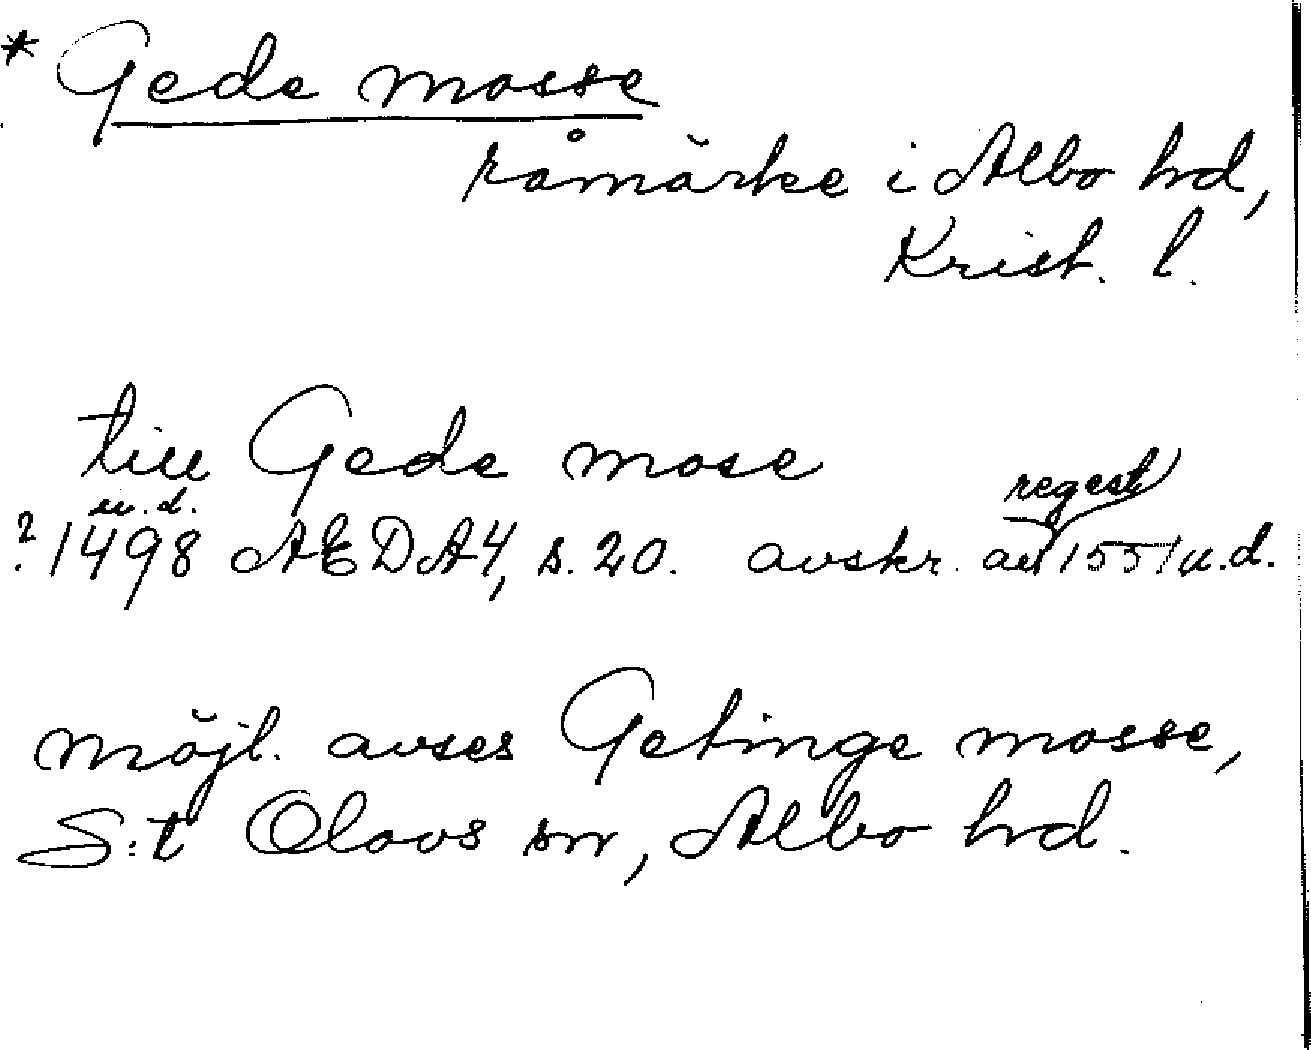 * Gede mosse
råmärke i Albo hd,
Krist. l.
till Gede mose
u.d.
regest
? 1498 AEDA4, s. 20. avskr. av 1551 u.d.
möjl. avses Getinge mosse,
S:t Olovs sn, Albo hd.